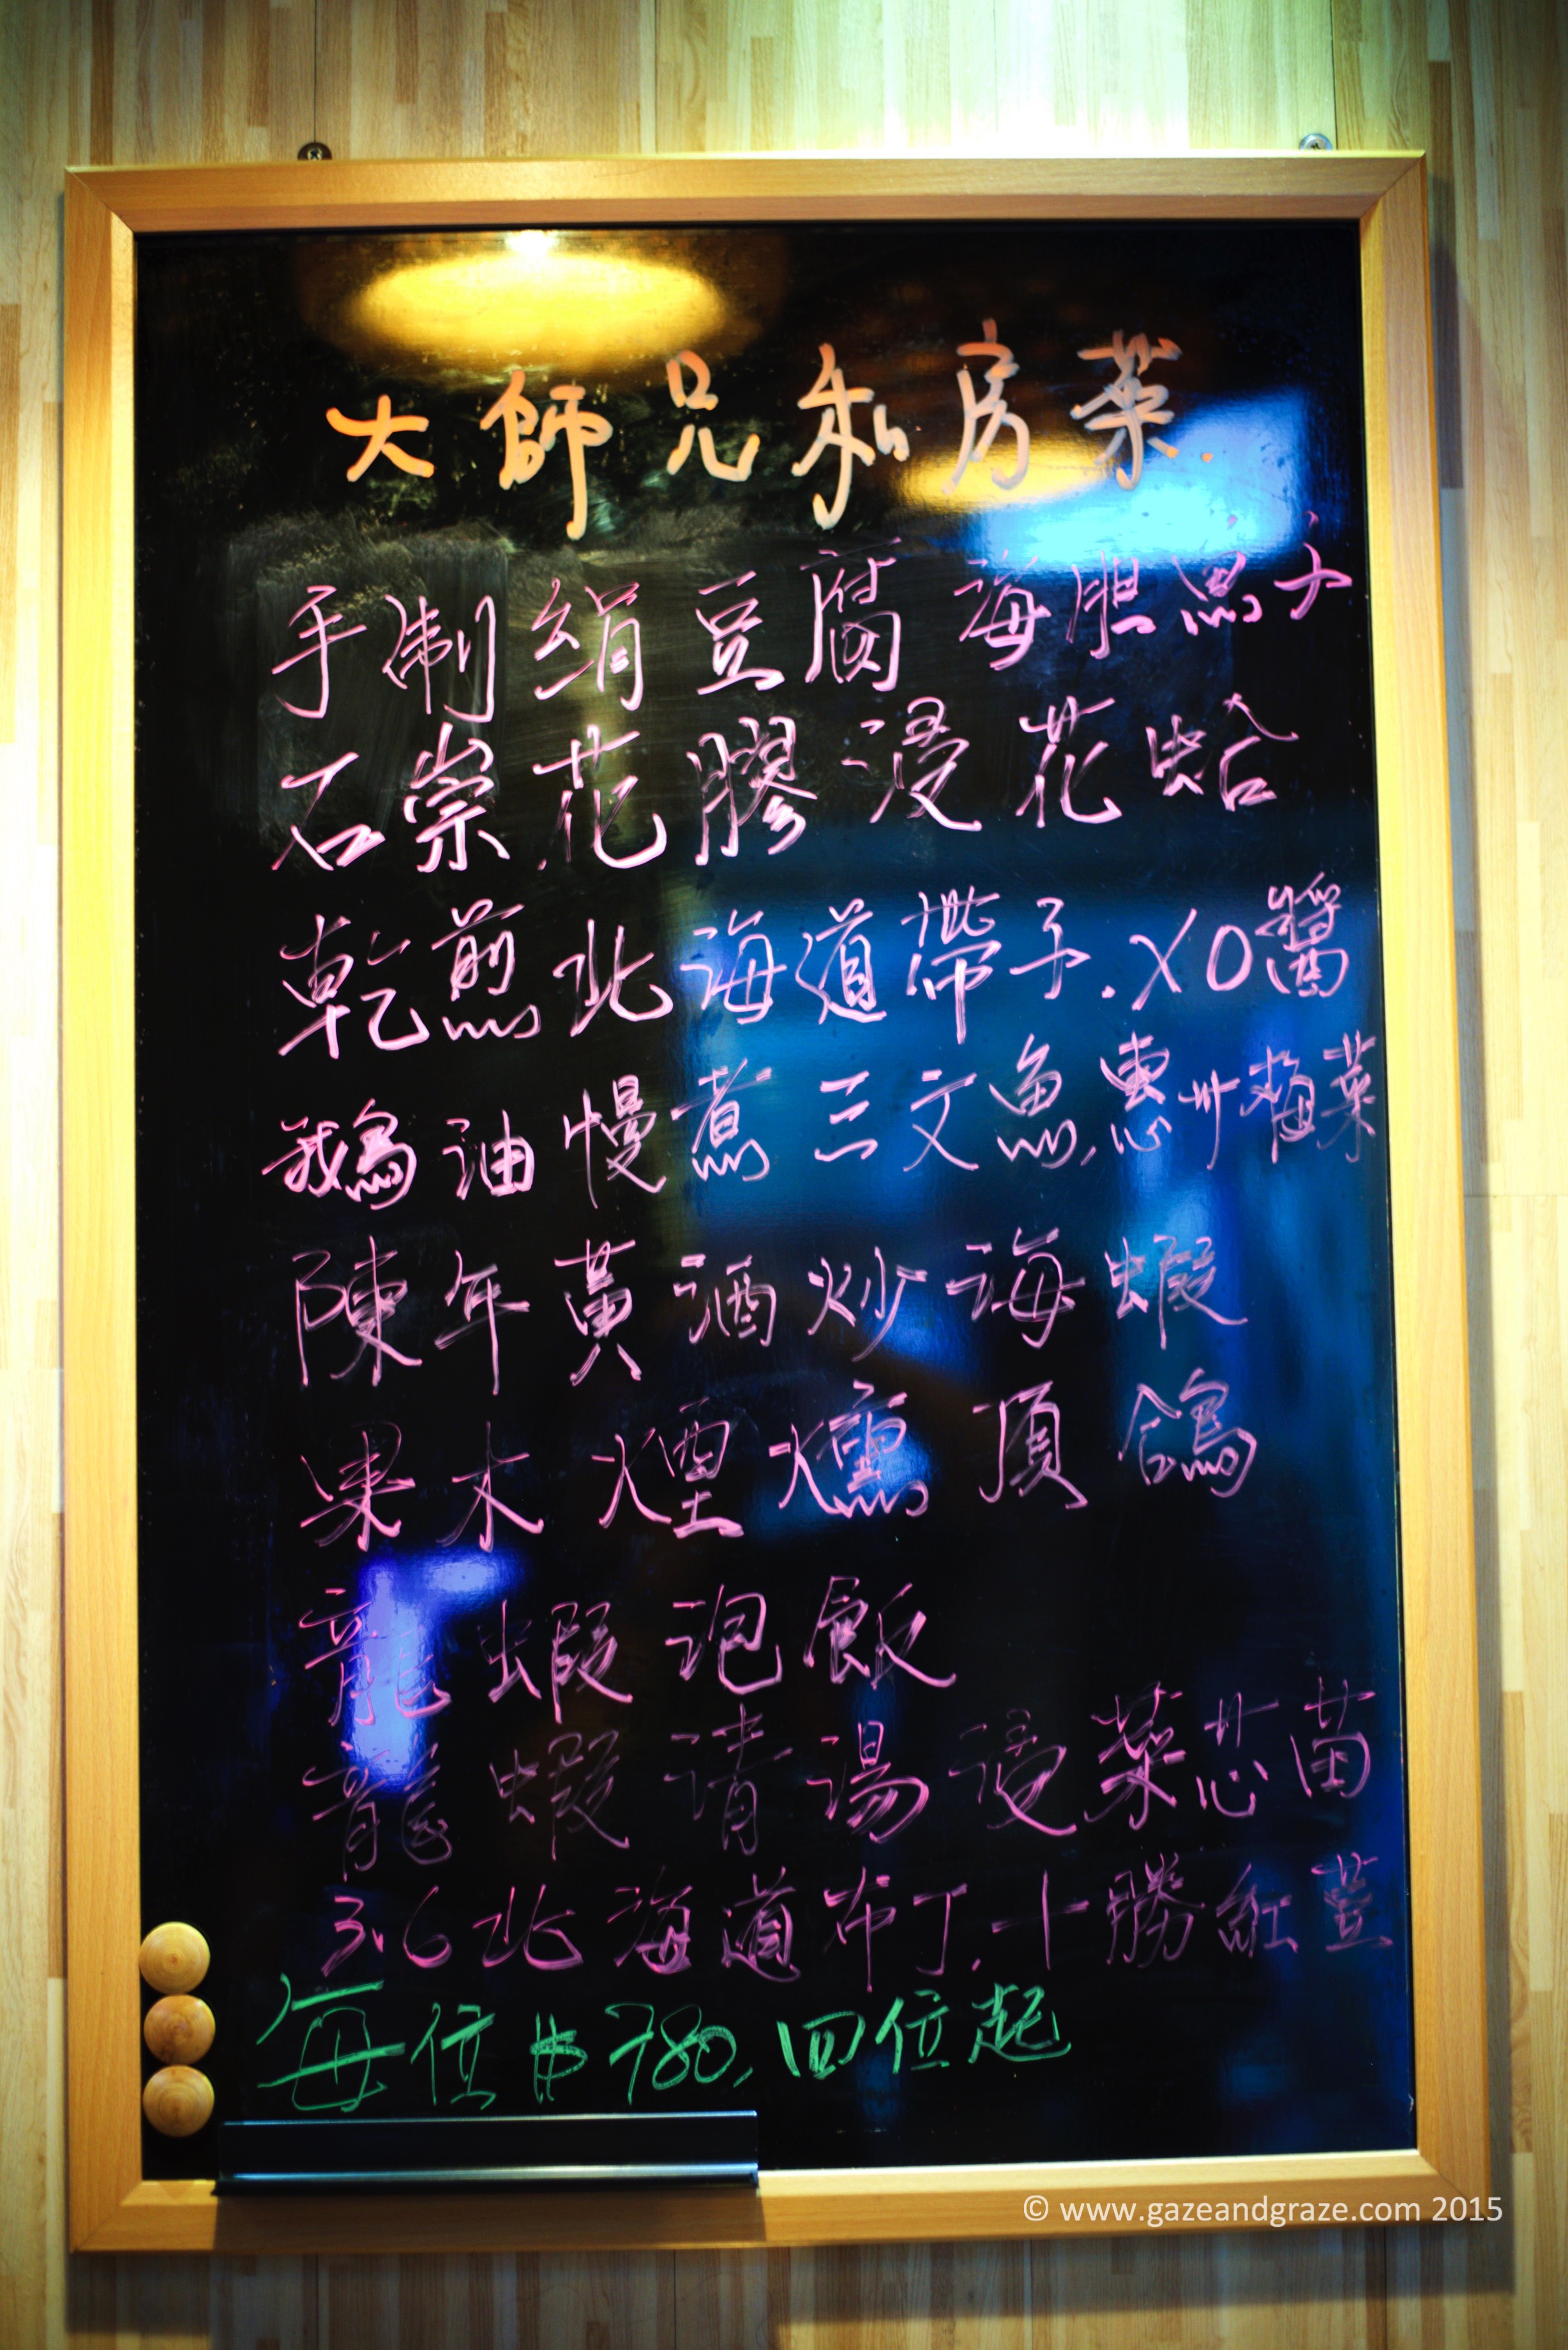 大師兄私房菜.
手制絹豆腐 海胆魚子
石崇花膠浸花蛤
乾煎北海道帶子.XO醬
鵝油慢煮三文魚,惠州梅菜
陳年黃酒炒海蝦
果木煙燻頂鴿
龍蝦泡飯
龍蝦清湯浸菜芯苗
3.6北海道布丁.十勝紅荳
每位$780,四位起
© www.gazeandgraze.com 2015